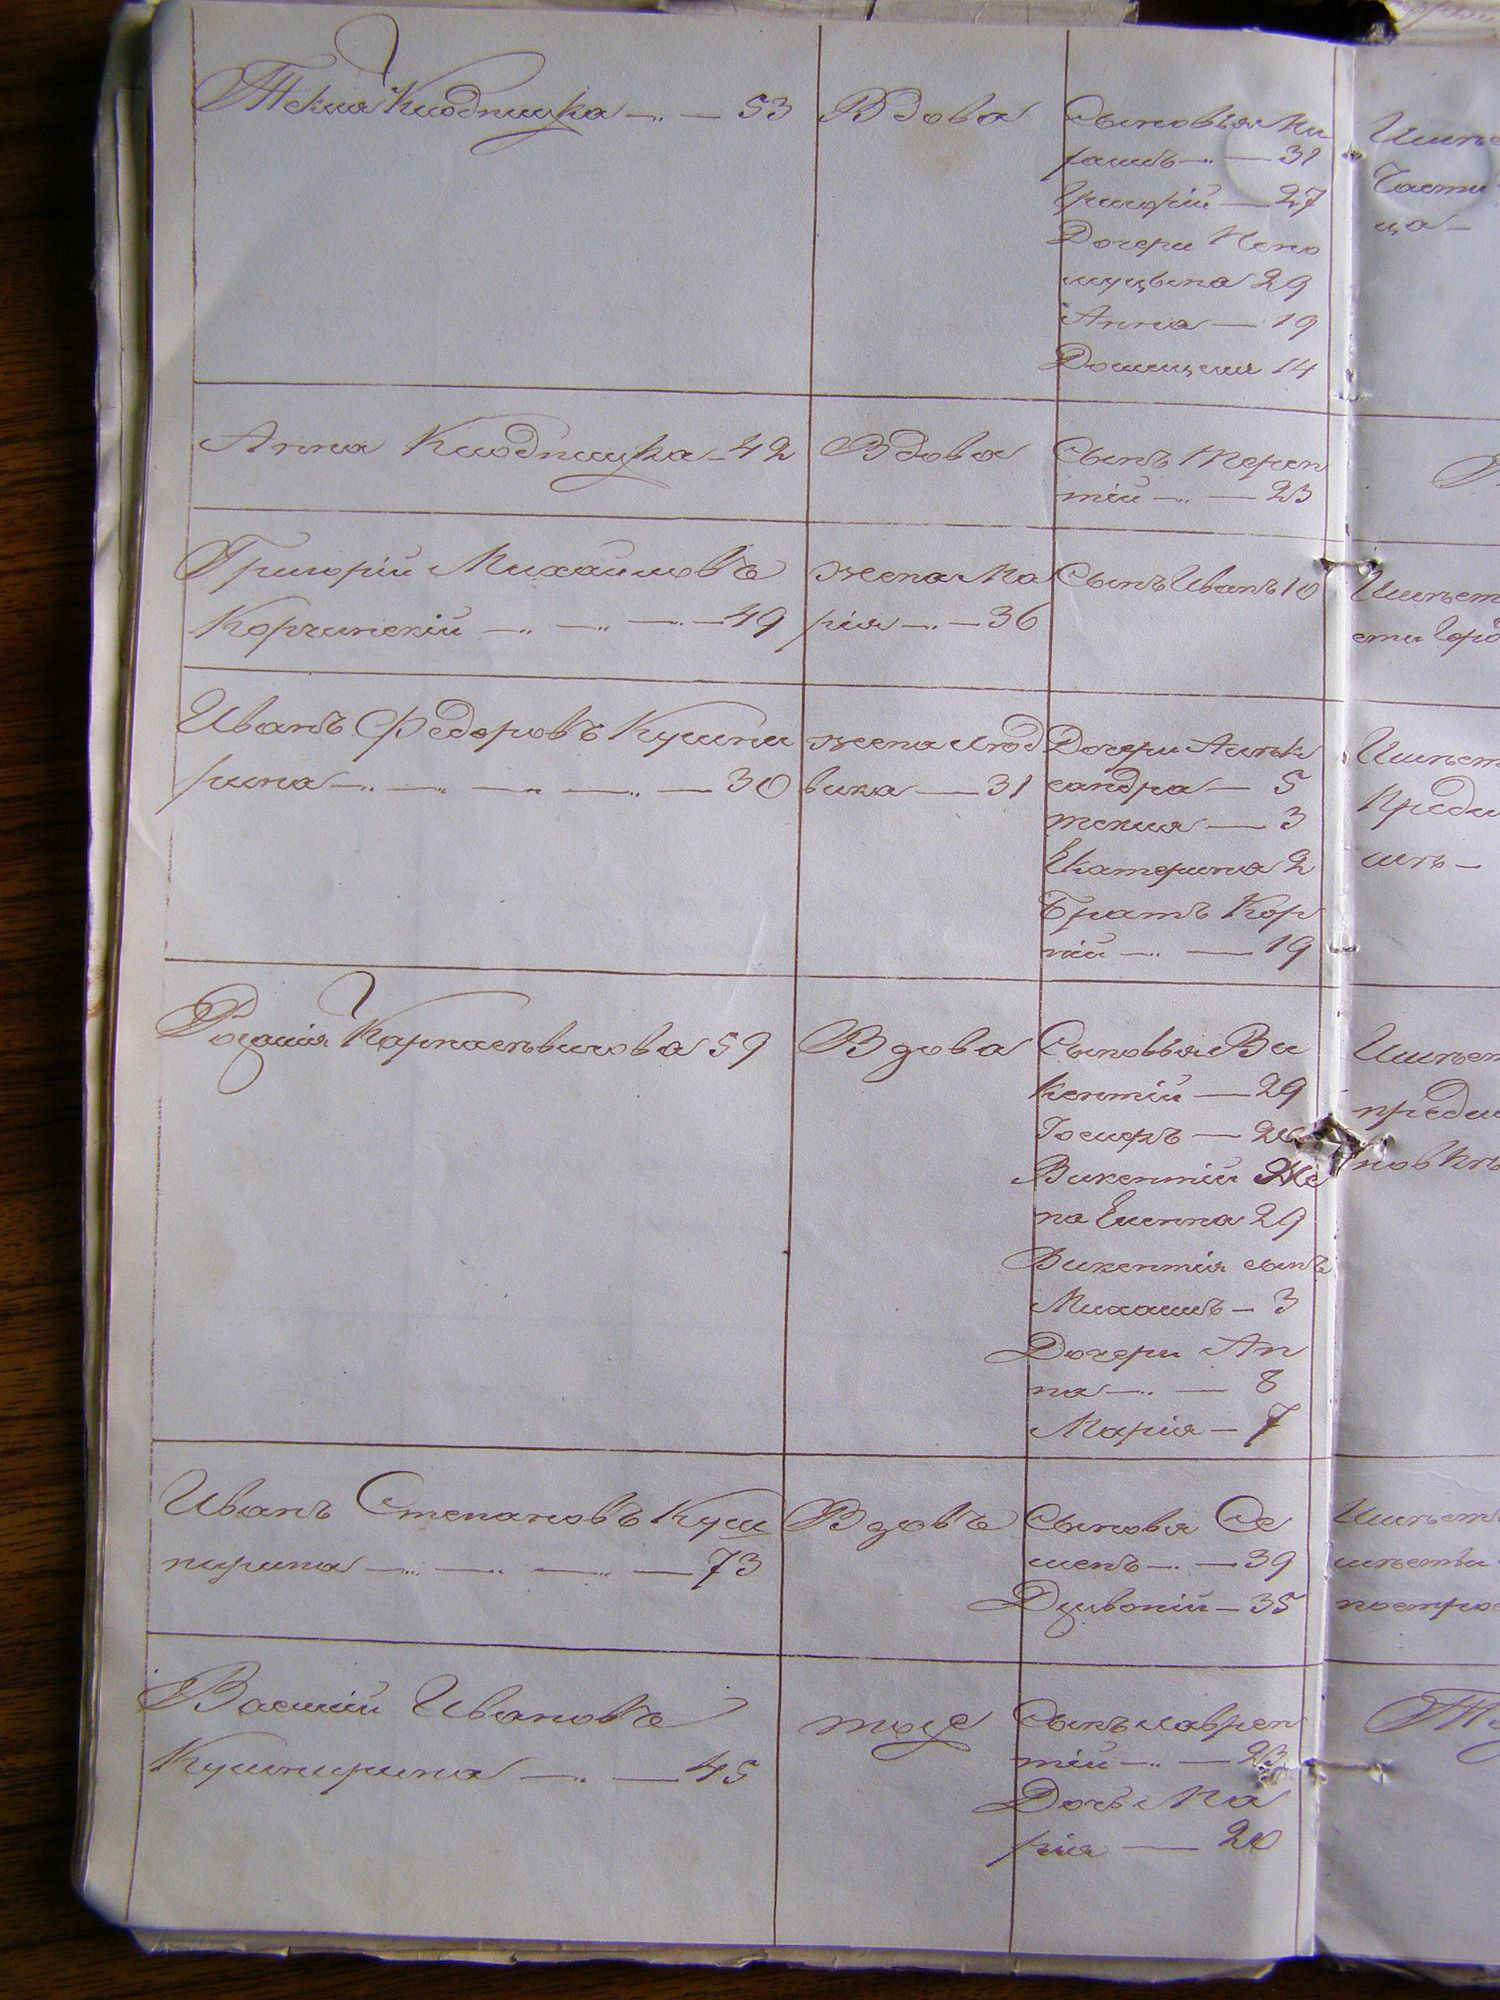 Текля Киодницка — 53
Вдова
Сыновья Ми
хаилъ — 31
Григорій — 27
Дочери Непо
муцена 29
Анна — 19
Домицеля 14
Анна Киодницка — 42
Вдова
Сынъ Терен
тій — 23
Григорій Михайловъ
Корчинскій — 49
жена Ма
рія — 36
Сынъ Иванъ 10
Иванъ Федоровъ Кушни
рина — 30
жена Люд
вика — 31
Дочери Алек
сандра — 5
текля — 3
Екатерина 2
Братъ Кор
ній — 19
Розалія Карпасевичова 59
Вдова
Сыновья Ви
кентій — 29
Іосифъ — 26
Викентій Же
на Елена 29
Викентія сынъ
Михаилъ — 3
Дочери Ан
на — 8
Марія — 7
Иванъ Степановъ Куш
нирина — 73
Вдовъ
Сыновя Се
менъ — 39
— 35
Василій Ивановъ
Кушнирина — 45
тоже
Сынъ Лаврен
тій — 23
Дочь Ма
рія — 20